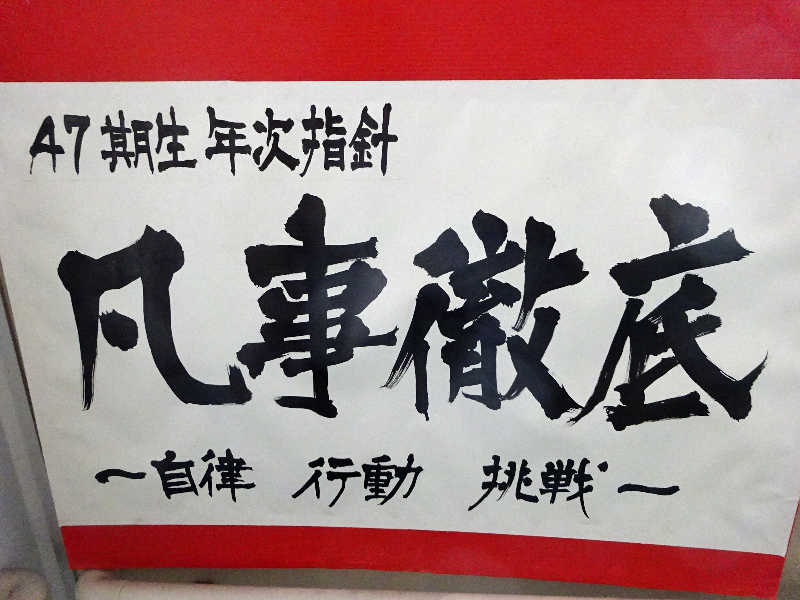 47期生年次指針
凡事徹底
〜自律 行動 挑戦〜